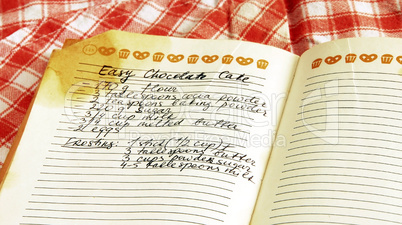 Easy Chocolate Cake
g flour
tablespoons cocoa powder
teaspoons baking powder
g sugar
3/4 cup milk
3/4 cup melted butter
2 eggs
Frosting: 1 stick (1/2 cup)
3 tablespoons butter
3 cups powder sugar
4-5 tablespoons milk